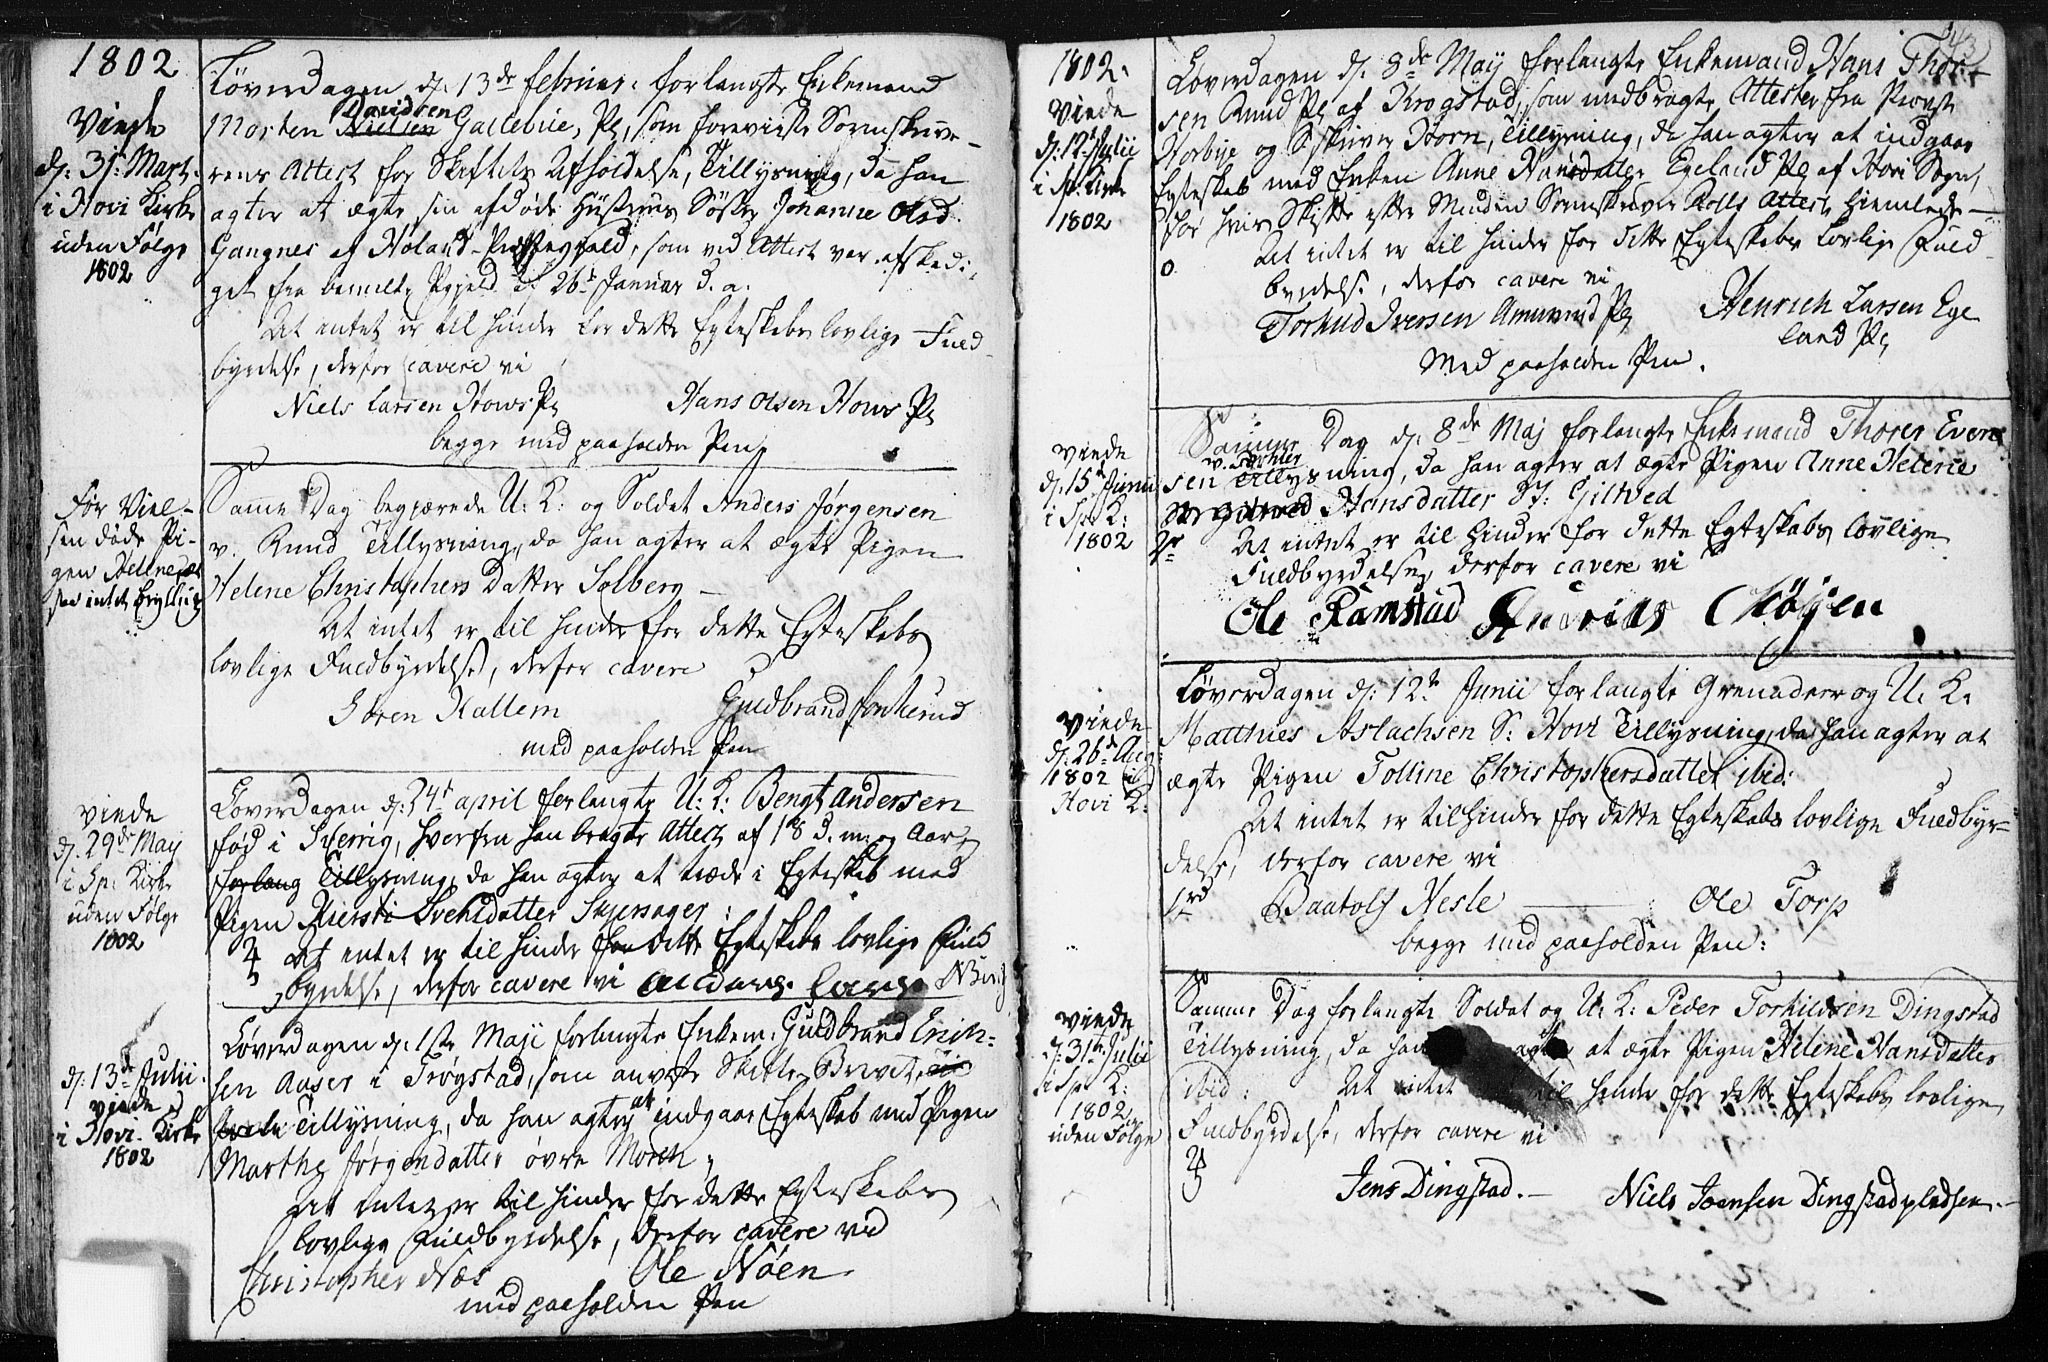 1802
Viede
d: 31t Mart.
i Hovi Kirke
uden Følge
1802
Løverdagen d: 13de februar: forlangte Enkemand
Davidsen
Morten Nielsen Gallebÿe, Pl, som foreviiste Sorenskrive-
rens Attest for Skiftets Afholdelse, Tillysning, da han
agter at ægte sin afdøde Hüstrues Søster Johanne Olsd.
Gangnes af Høland Præstegield, som ved Attest var afskedi-
get fra bemelte Pgield d: 26t Januar d. a.
At intet er til hinder for dette Egteskabs lovlige Fuld-
byrdelse, derfor cavere vi
Niels Larsen Hows Pl Hans Olsen Hows Pl
begge med paaholden Pen
Før Viel-
sen døde Pi-
gen Hellene
saa intet Bryllup
Samme Dag begjærede U: K: og Soldat Anders Jørgensen
v. Rund Tillysning, da han agter at ægte Pigen
Helene Christophers Datter Solberg
At intet er til hinder for dette Egteskabs
lovlige Fuldbyrdelse, derfor cavere
Søren Hallem Guldbrand Jonkerud
med paaholden Pen
viede
d: 29de May
i Sp: Kirke
uden Følge
1802
Løverdagen d: 24t april forlangte U: K: Bengt Andersen
fød i Sverrig, hvorfra han bragte Attest af 18 d. m. og Aar,
forlang Tillysning, da han agter at træde i Egteskab med
Pigen Kiersti Svensdatter
At intet er til hinder for dette Egteskabs lovlige Fuld
byrdelse, derfor cavere vi
d: 13de Julii
viede
i Hovi Kirke
1802
Løverdagen d: 1ste Maji forlangte Enkem: Guldbrand Erich-
sen Aaser i Trøgstad, som anviste Skifte-Brevet,
Tillysning, da han agter at indgaae Egteskab med Pigen
Marthe Jørgendatter øvre Morch
At intet er til hinder for dette Egteskabs
lovlige Fuldbyrdelse, derfor cavere vi
Christopher Næs Ole Nöen
med paaholden Pen
1802.
Viede
d: 12t Julii
i Sp: Kirke
1802
Løverdagen d: 8de May forlangte Enkemand Hans Thor-
sen Rund Pl af Krogstad, som medbragte Attester fra Provst
Horbye og Sskriver Horn, Tillysning, da han agter at indgaae
Egteskab med Enken Anne Hansdatter Egeland Pl af Hovi Sogn,
for hvis Skifte efter Manden Sorenskriver Rolls Attest hiemlede
At intet er til hinder for dette Egteskabs lovlige Fuld
byrdelse, derfor cavere vi
Torkild Iversen Amunrud Pl Henrich Larsen Ege
land Pl
Med paaholden Pen.
viede
d: 15t Junii
i Sp: K:
1802
Samme Dag d: 8de Maj forlangte Enkemand Thorer Even
sen Tillysning, da han agter at ægte Pigen Anne Helene
Hansdatter Giltved
At intet er til Hinder for dette Egteskabs lovlige
Fuldbyrdelse, derfor cavere vi
Ole Ramstad
Viede
d: 26de Aug:
1802 i
Hovi K:
Løverdagen d: 12te Junii forlangte Grenadeer og U: K:
Matthies Aslachsen S: Hovi Tillysning, da han agter at
ægte Pigen Tolline Christophersdatter ibid:
At intet er til hinder for dette Egteskabs lovlige Fuldbyr-
delse, derfor cavere vi
Baatolf Nesle Ole Torp
begge med paaholden Pen:
viede
d: 31te Julii
i Sp: K:
1802
uden Følge
Samme Dag forlangte Soldat og U: K: Peder Torkildsen Dingstad
Tillysning, da han agter at ægte Pigen Helene Hansdatter
ibid: At intet er til hinder for dette Egteskabs lovlige
Fuldbyrdelse, derfor cavere vi
Jens Dingstad. Niels Joensen Dingstadpladsen.